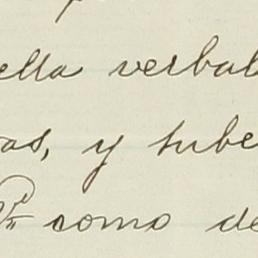 ella verbal
as, y sube
como de